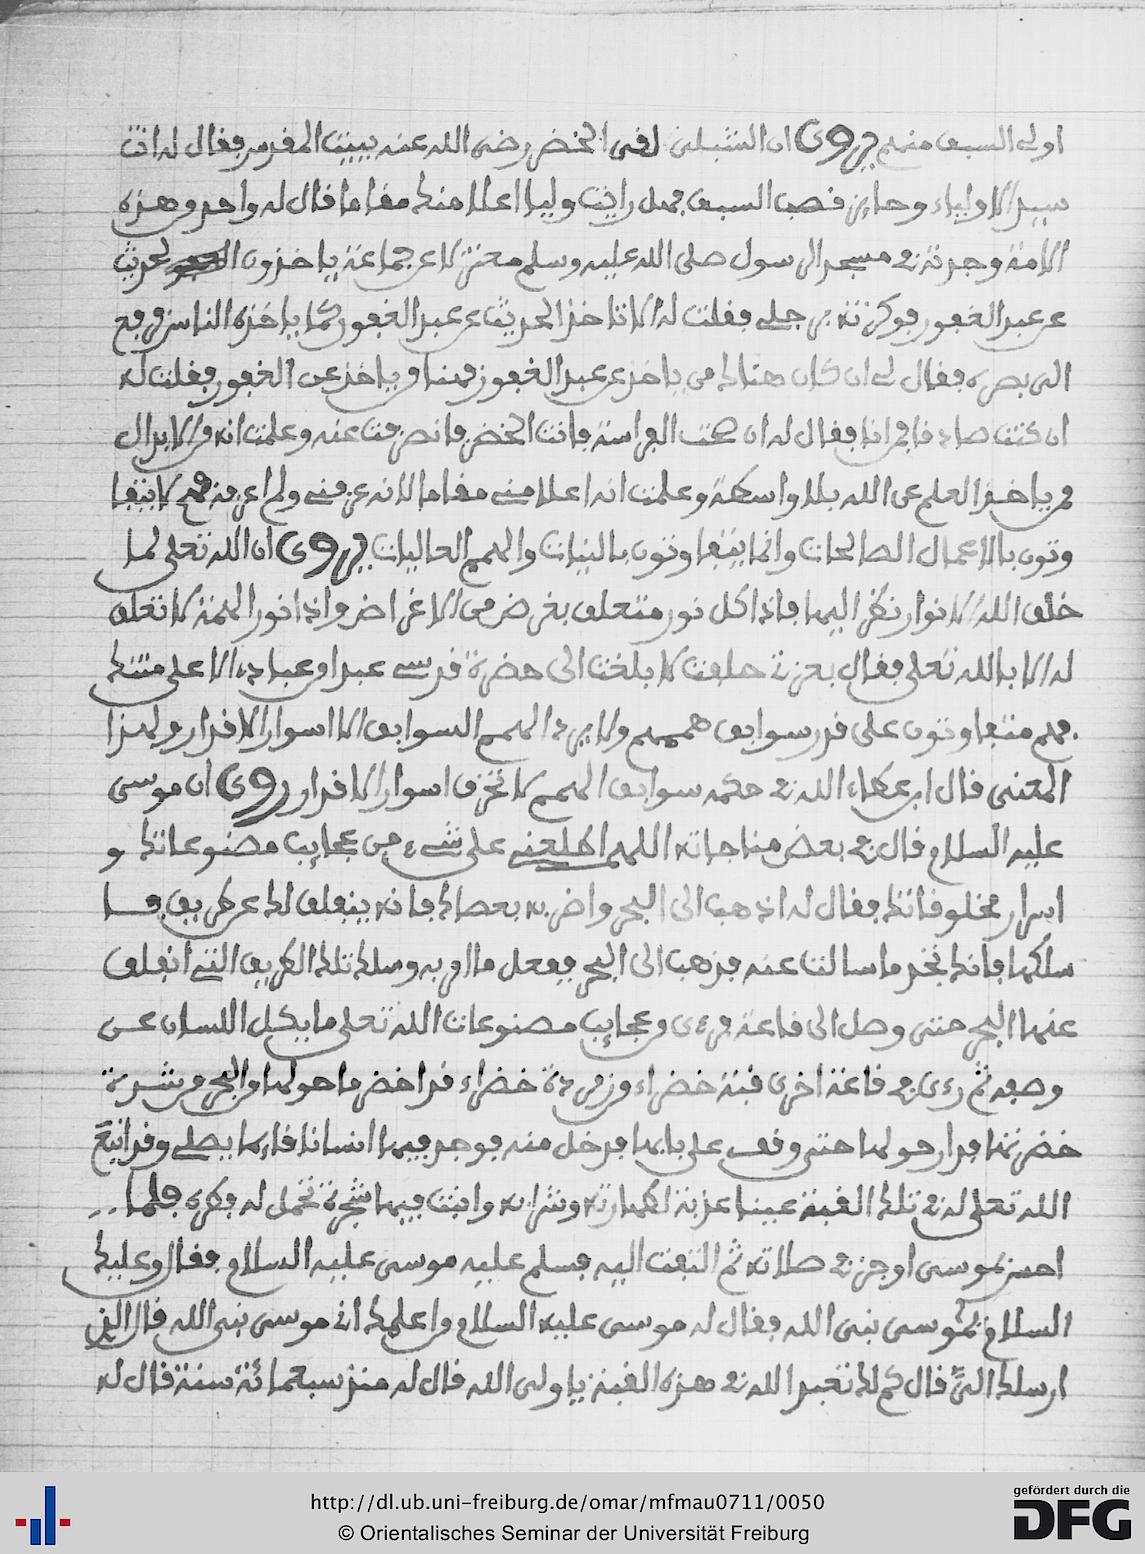 اولى السبق منهم روى ان الشبلي لقى الخضر رضى الله عنه ببيت المقدس فقال له انت
سيد الاولياء وحايز قصب السبق فهل رايت وليا اعلا منك مقاما قال له واحد وهذه
الامة وجدته في مسجد الرسول صلى الله عليه وسلم معتزلا عن جماعة ياخذون الحديث
عن عبد الغفور فوكزته برجلي فقلت له الا تاخذ الحديث عن عبد الغفور كما ياخذه الناس فرفع
الي بصره فقال لي ان كان هناك من ياخذ عن عبد الغفور فهنا من ياخذ عن الغفور فقلت له
ان كنت صادقا فمن انا فقال له ان صحت الفراسة فانت الخضر فانصرفت عنه وعلمت انه من الابدال
من ياخذ العلم عن الله بلا واسطة وعلمت انه اعلا مني مقاما لانه عرفني ولم اعرفه فهم لا يتفا
وتون بالاعمال الصالحات وانما يتفاوتون بالنيات والهمم العاليات روى ان الله تعلى لما
خلق الله الانوار نظر اليها فاذا كل نور متعلق بغرض من الاغراض واذا نور الهمة لا تعلق
له الا بالله تعلى فقال بعزتي حلفت لا بلغت الى حضرة قدسي عبدا من عبادي الا على متنك
فهم متفاوتون على قدر سوابق هممهم ولا يرد الهمم السوابق الا اسوار الاقدار ولهذا
المعنى قال ابن عطاء الله في حكمه سوابق الهمم لا تخرق اسوار الاقدار روى ان موسى
عليه السلام قال في بعض مناجاته اللهم اطلعني على شيء من عجايب مصنوعاتك و
اسرار مخلوقاتك فقال له اذهب الى البحر واضربه بعصاك فانه ينفلق لك عن طريق فا
سلكها فانك تجد ما سالتنا عنه فذهب الى البحر ففعل ما امر به وسلك تلك الطريق التي انفلق
عنها البحر حتى وصل الى قاعه فرءى من عجايب مصنوعات الله تعلى ما يكل اللسان عن
وصفه ثم رءى في قاعة اخرى قبة خضراء من زمردة خضراء قد اخضر ما حولها من البحر من شدة
خضرتها فدار حولها حتى وقف على بابها فدخل منه فوجد فيها انسانا قايما يصلي وقد انبع
الله تعلى له في تلك القبة عينا عذبة لطهارته وشرابه وانبت فيها شجرة تحمل له فطره فلما
احس بموسى اوجز في صلاته ثم التفت اليه فسلم عليه موسى عليه السلام فقال وعليك
السلام يموسى نبي الله فقال له موسى عليه السلام وما اعلمك اني موسى نبي الله قال الذي
ارسلك الي قال كم لك تعبد الله في هذه القبة يا ولي الله قال له منذ سبعمائة سنة قال له
http://dl.ub.uni-freiburg.de/omar/mfmau0711/0050
© Orientalisches Seminar der Universität Freiburg
gefördert durch die
DFG